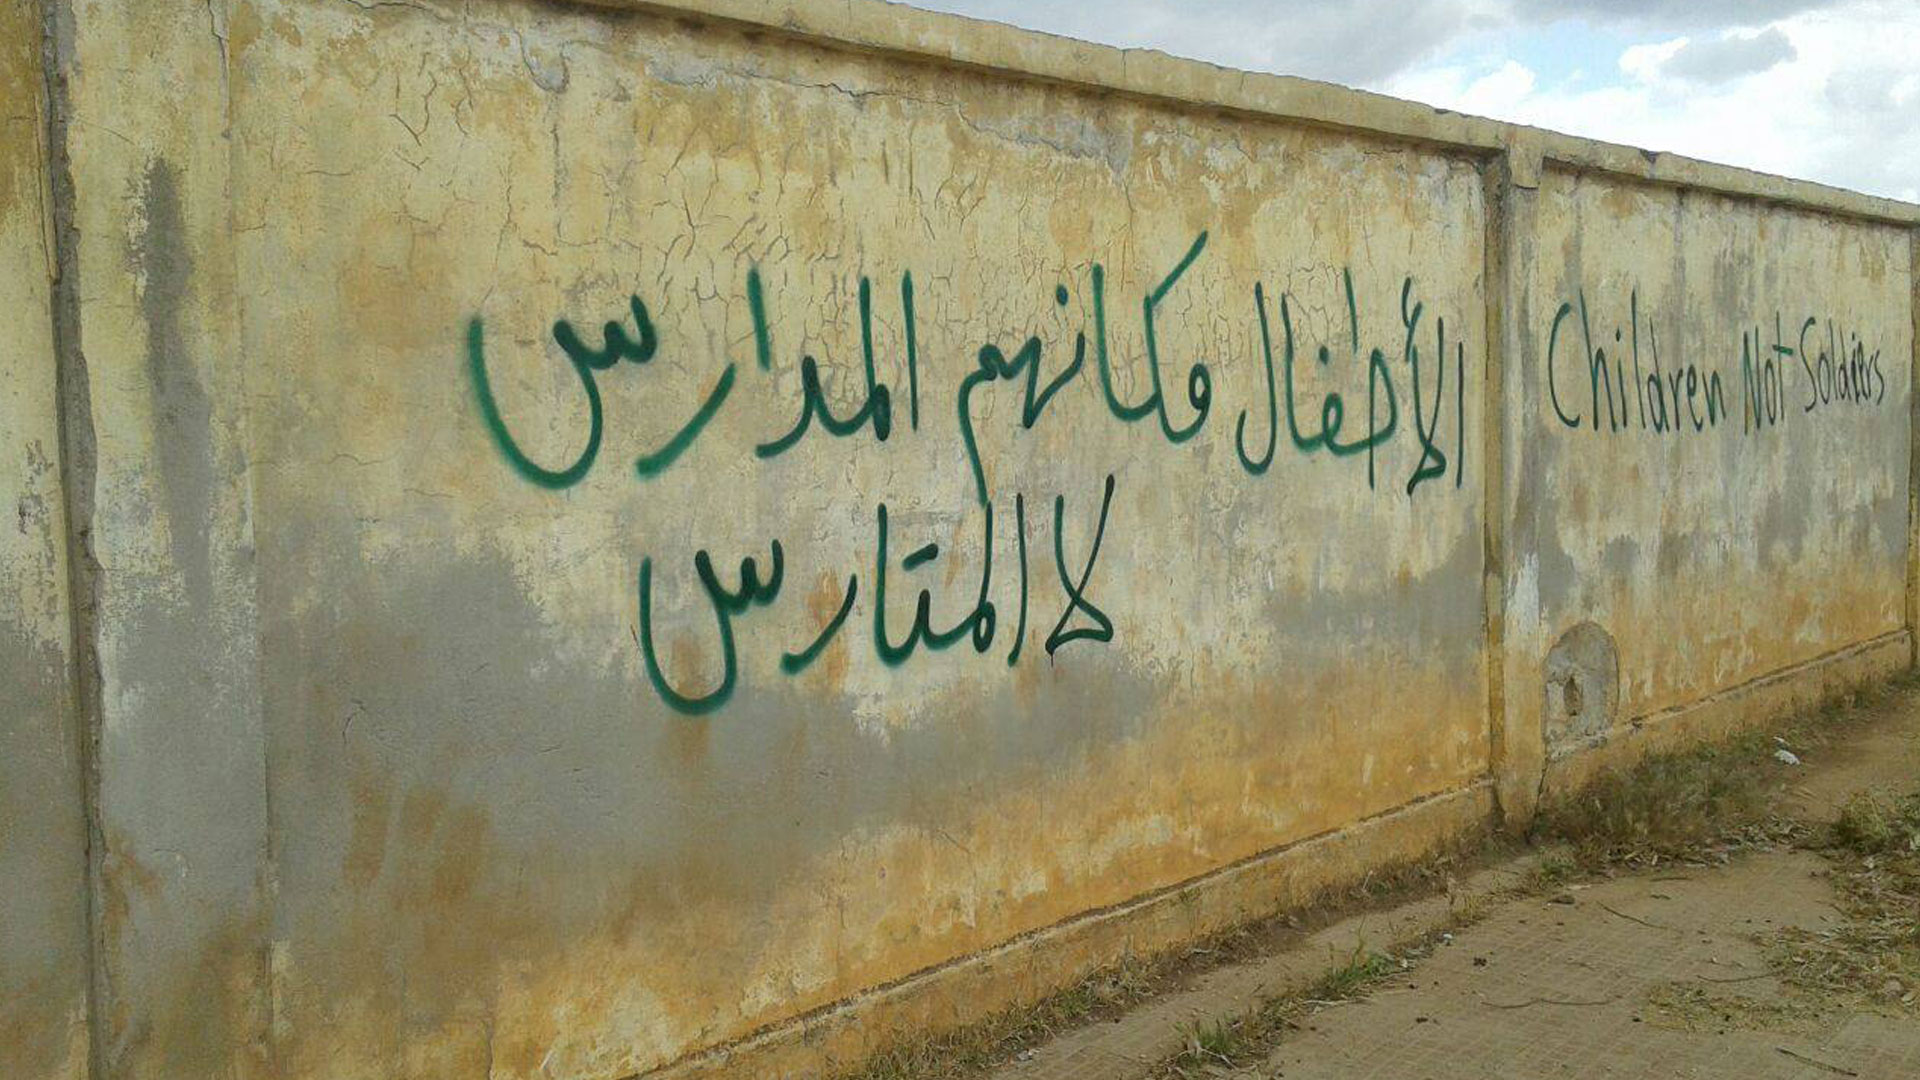 الأطفال مكانهم المدارس
لا المتارس
Children Not Soldiers